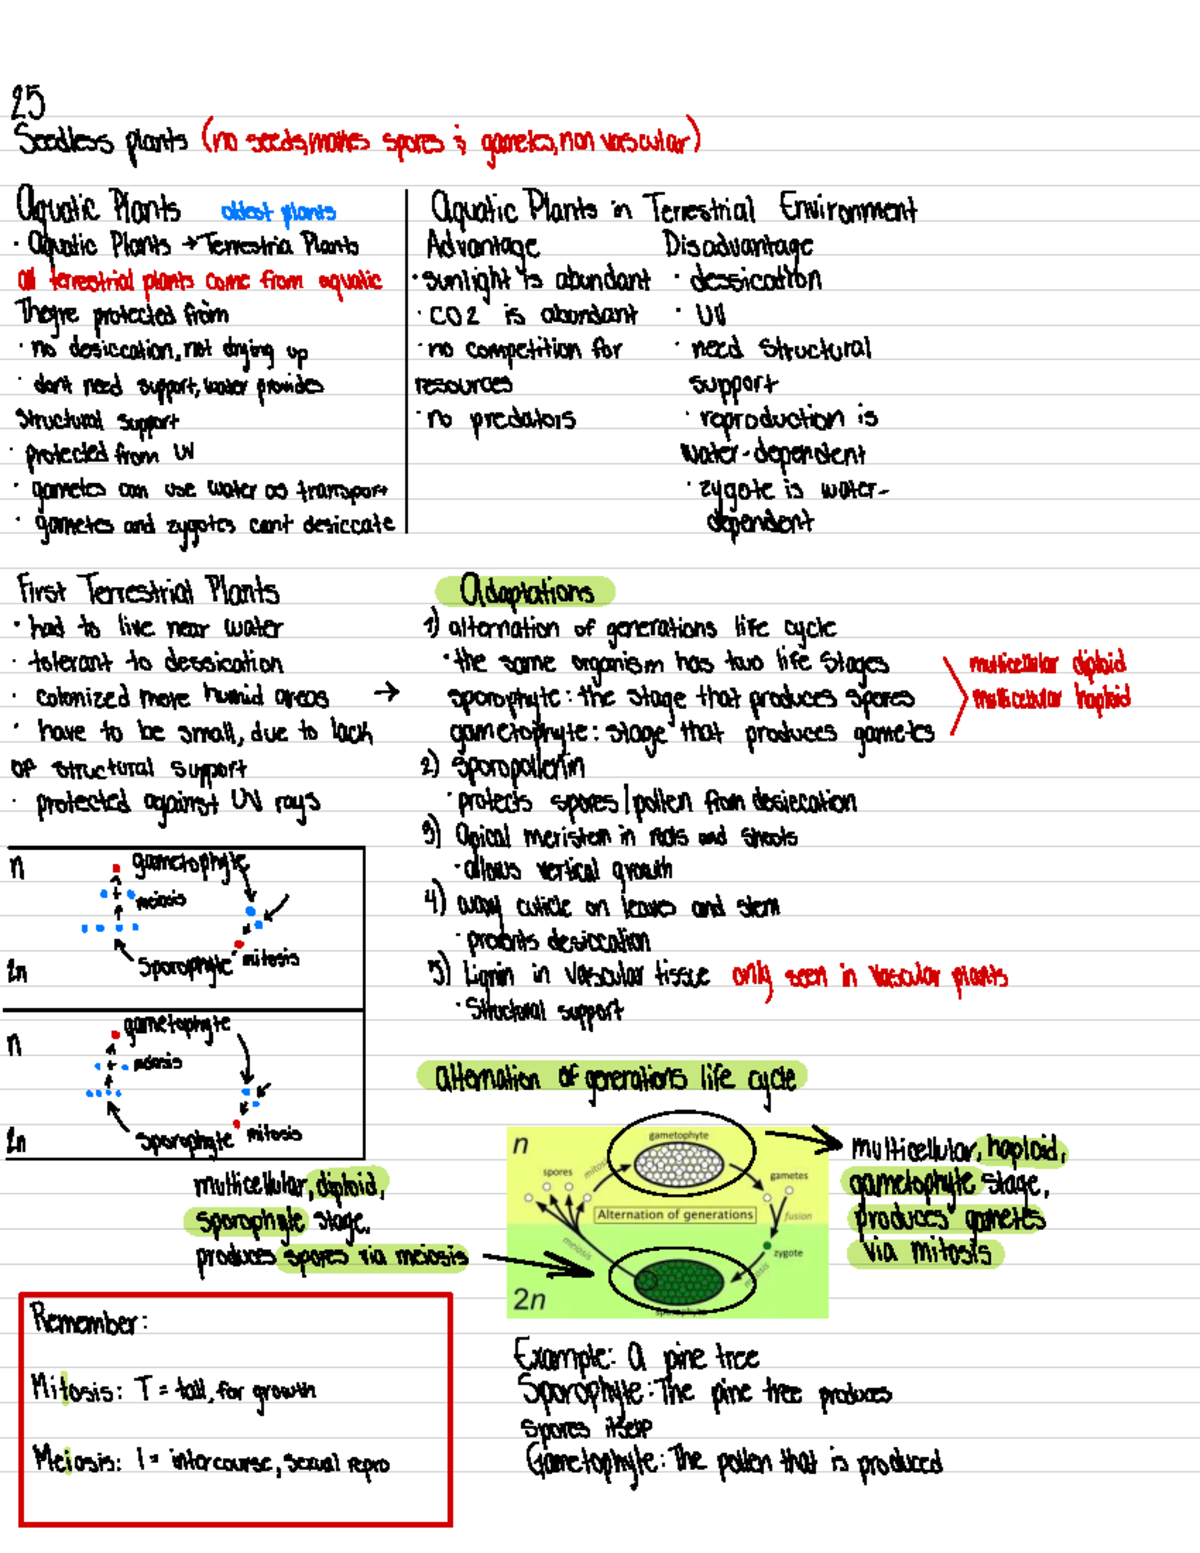 25
Seedless plants (no seeds, makes spores & gametes, non vascular)
Aquatic Plants oldest plants
· Aquatic Plants → Terrestria Plants
all terrestrial plants come from aquatic
Theyre protected from
· no desiccation, not drying up
· dont need support, water provides
structural support
· protected from UV
· gametes can use water as transport
· gametes and zygotes cant desiccate
Aquatic Plants in Terrestrial Environment
Advantage
· sunlight is abundant
· CO2 is abundant
· no competition for
resources
· no predators
Disadvantage
· dessication
· UV
· need structural
support
· reproduction is
water-dependent
· zygote is water-
dependent
First Terrestrial Plants
· had to live near water
· tolerant to dessication
· colonized more humid areas →
· have to be small, due to lack
of structural support
· protected against UV rays
Adaptations
1) alternation of generations life cycle
· the same organism has two life stages
sporophyte: the stage that produces spores
gametophyte: stage that produces gametes
multicellular diploid
multicellular haploid
2) Sporopollenin
· protects spores/pollen from desiccation
3) Apical meristem in roots and shoots
· allows vertical growth
4) waxy cuticle on leaves and stem
· prevents desiccation
5) Lignin in vascular tissue only seen in vascular plants
· Structural support
n
gametophyte
meiosis
sporophyte
mitosis
2n
n
gametophyte
meiosis
sporophyte
mitosis
2n
alternation of generations life cycle
n
gametophyte
spores
mitosis
gametes
Alternation of generations
fusion
meiosis
zygote
mitosis
2n
sporophyte
multicellular, haploid,
gametophyte stage,
produces gametes
via mitosis
multicellular, diploid,
sporophyte stage,
produces spores via meiosis
Remember:
Mitosis: T = tall, for growth
Meiosis: I = intercourse, sexual repro
Example: A pine tree
Sporophyte: The pine tree produces
spores itself
Gametophyte: The pollen that is produced